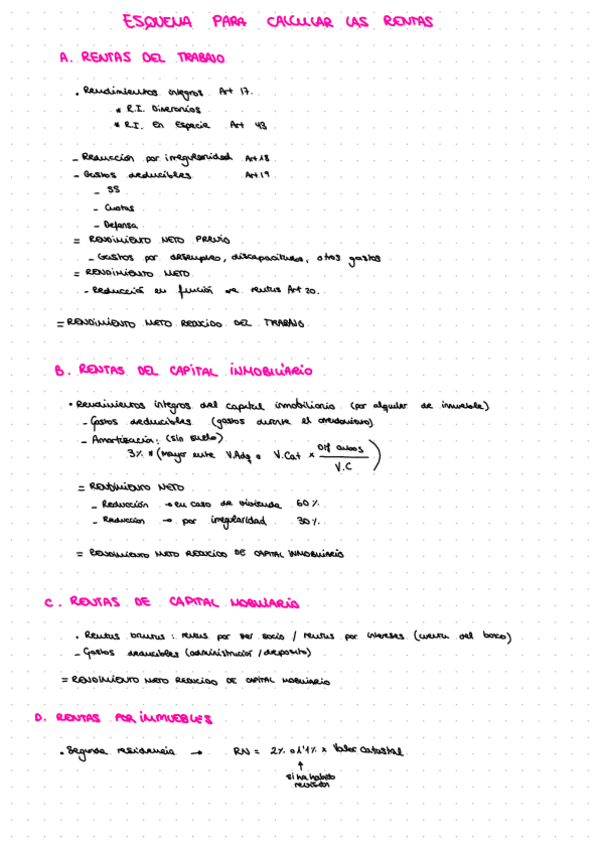 ESQUEMA PARA CALCULAR LAS RENTAS
A. RENTAS DEL TRABAJO
• Rendimientos íntegros Art 17.
* R.I. Dinerarios
* R.I. En Especie Art 43
- Reducción por irregularidad Art 18
- Gastos deducibles Art 19
- SS
- Cuotas
- Defensa
= RENDIMIENTO NETO PREVIO
- Gastos por desempleo, discapacitados, otros gastos
= RENDIMIENTO NETO
- Reducción en función de rentas Art 20.
= RENDIMIENTO NETO REDUCIDO DEL TRABAJO
B. RENTAS DEL CAPITAL INMOBILIARIO
• Rendimientos íntegros del capital inmobiliario (por alquiler de inmueble)
- Gastos deducibles (gastos durante el arrendamiento)
- Amortización: (sin suelo)
3% * (mayor entre V.Adq o V.Cat x Dif ambos / V.C )
= RENDIMIENTO NETO
- Reducción → en caso de vivienda 60%
- Reducción → por irregularidad 30%
= RENDIMIENTO NETO REDUCIDO DE CAPITAL INMOBILIARIO
C. RENTAS DE CAPITAL MOBILIARIO
• Rentas brutas: rentas por ser socio / rentas por intereses (cuenta del banco)
- Gastos deducibles (administración / depósito)
= RENDIMIENTO NETO REDUCIDO DE CAPITAL MOBILIARIO
D. RENTAS POR INMUEBLES
• Segunda residencia → RN = 2% o 1'1% x Valor Catastral
↑
si ha habido
revisión